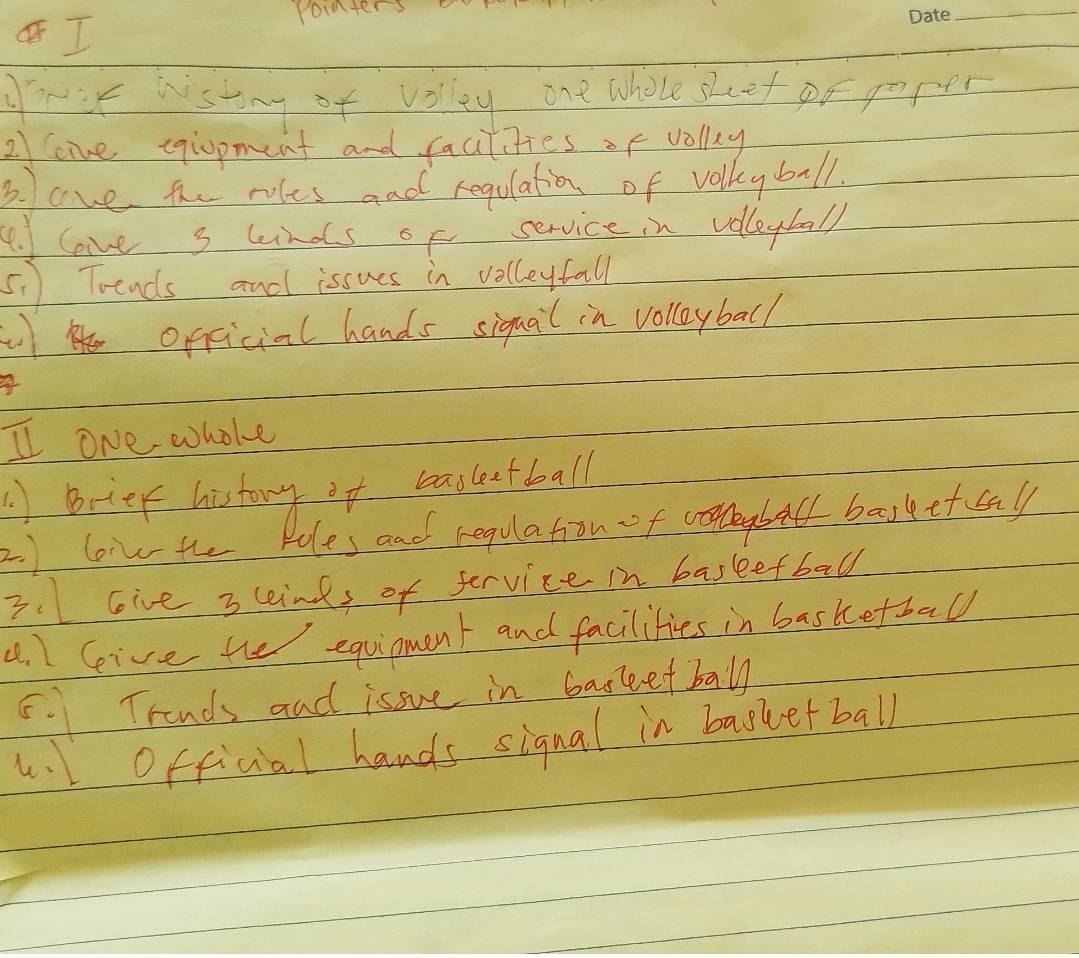 Pointers
Date
I
1.) Brief history of volley one whole sheet of paper
2.) Give eqiupment and facilities of volley
3.) Give the rules and regulation of volleyball.
4.) Give 3 kinds of service in volleyball
5.) Trends and issues in volleyball
6.) Official hands signal in volleyball
II ONE whole
1.) Brief history of basketball
2.) Give the Rules and regulation of volleyball basketball
3.) Give 3 kinds of service in basketball
4.) Give the equipment and facilities in basketball
5.) Trends and issue in basketball
6.) Official hands signal in basketball